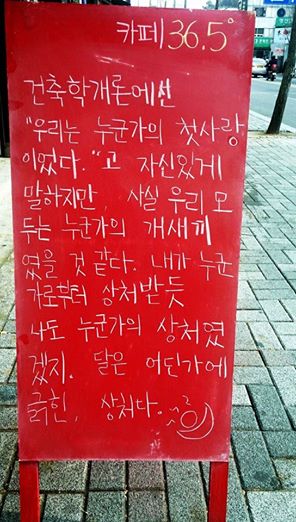 카페 36.5°
건축학개론에선
"우리는 누군가의 첫사랑
이었다."고 자신있게
말하지만, 사실 우리 모
두는 누군가의 개새끼
였을 것 같다. 내가 누군
가로부터 상처받듯
나도 누군가의 상처였
겠지. 달은 어딘가에
긁힌, 상처다.